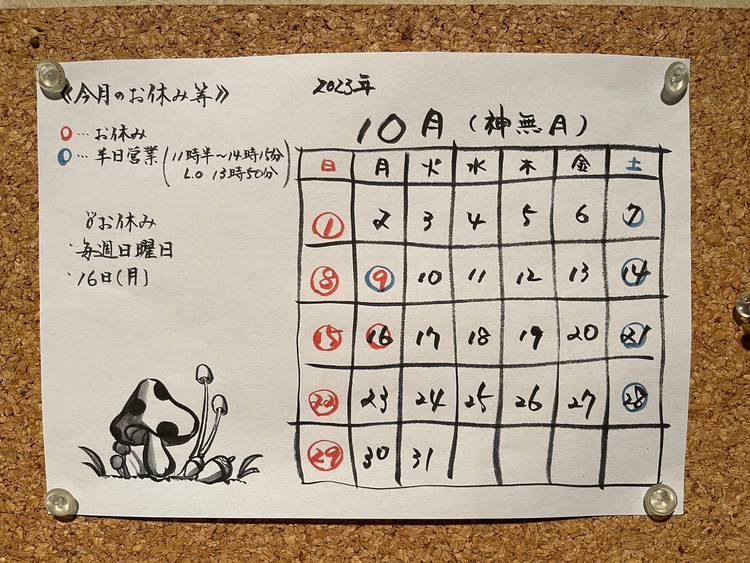 《今月のお休み等》
○…お休み
○…半日営業(11時半〜14時15分
L.O 13時50分)
お休み
・毎週日曜日
・16日(月)
2023年
10月(神無月)
日 月 火 水 木 金 土
1 2 3 4 5 6 7
8 9 10 11 12 13 14
15 16 17 18 19 20 21
22 23 24 25 26 27 28
29 30 31